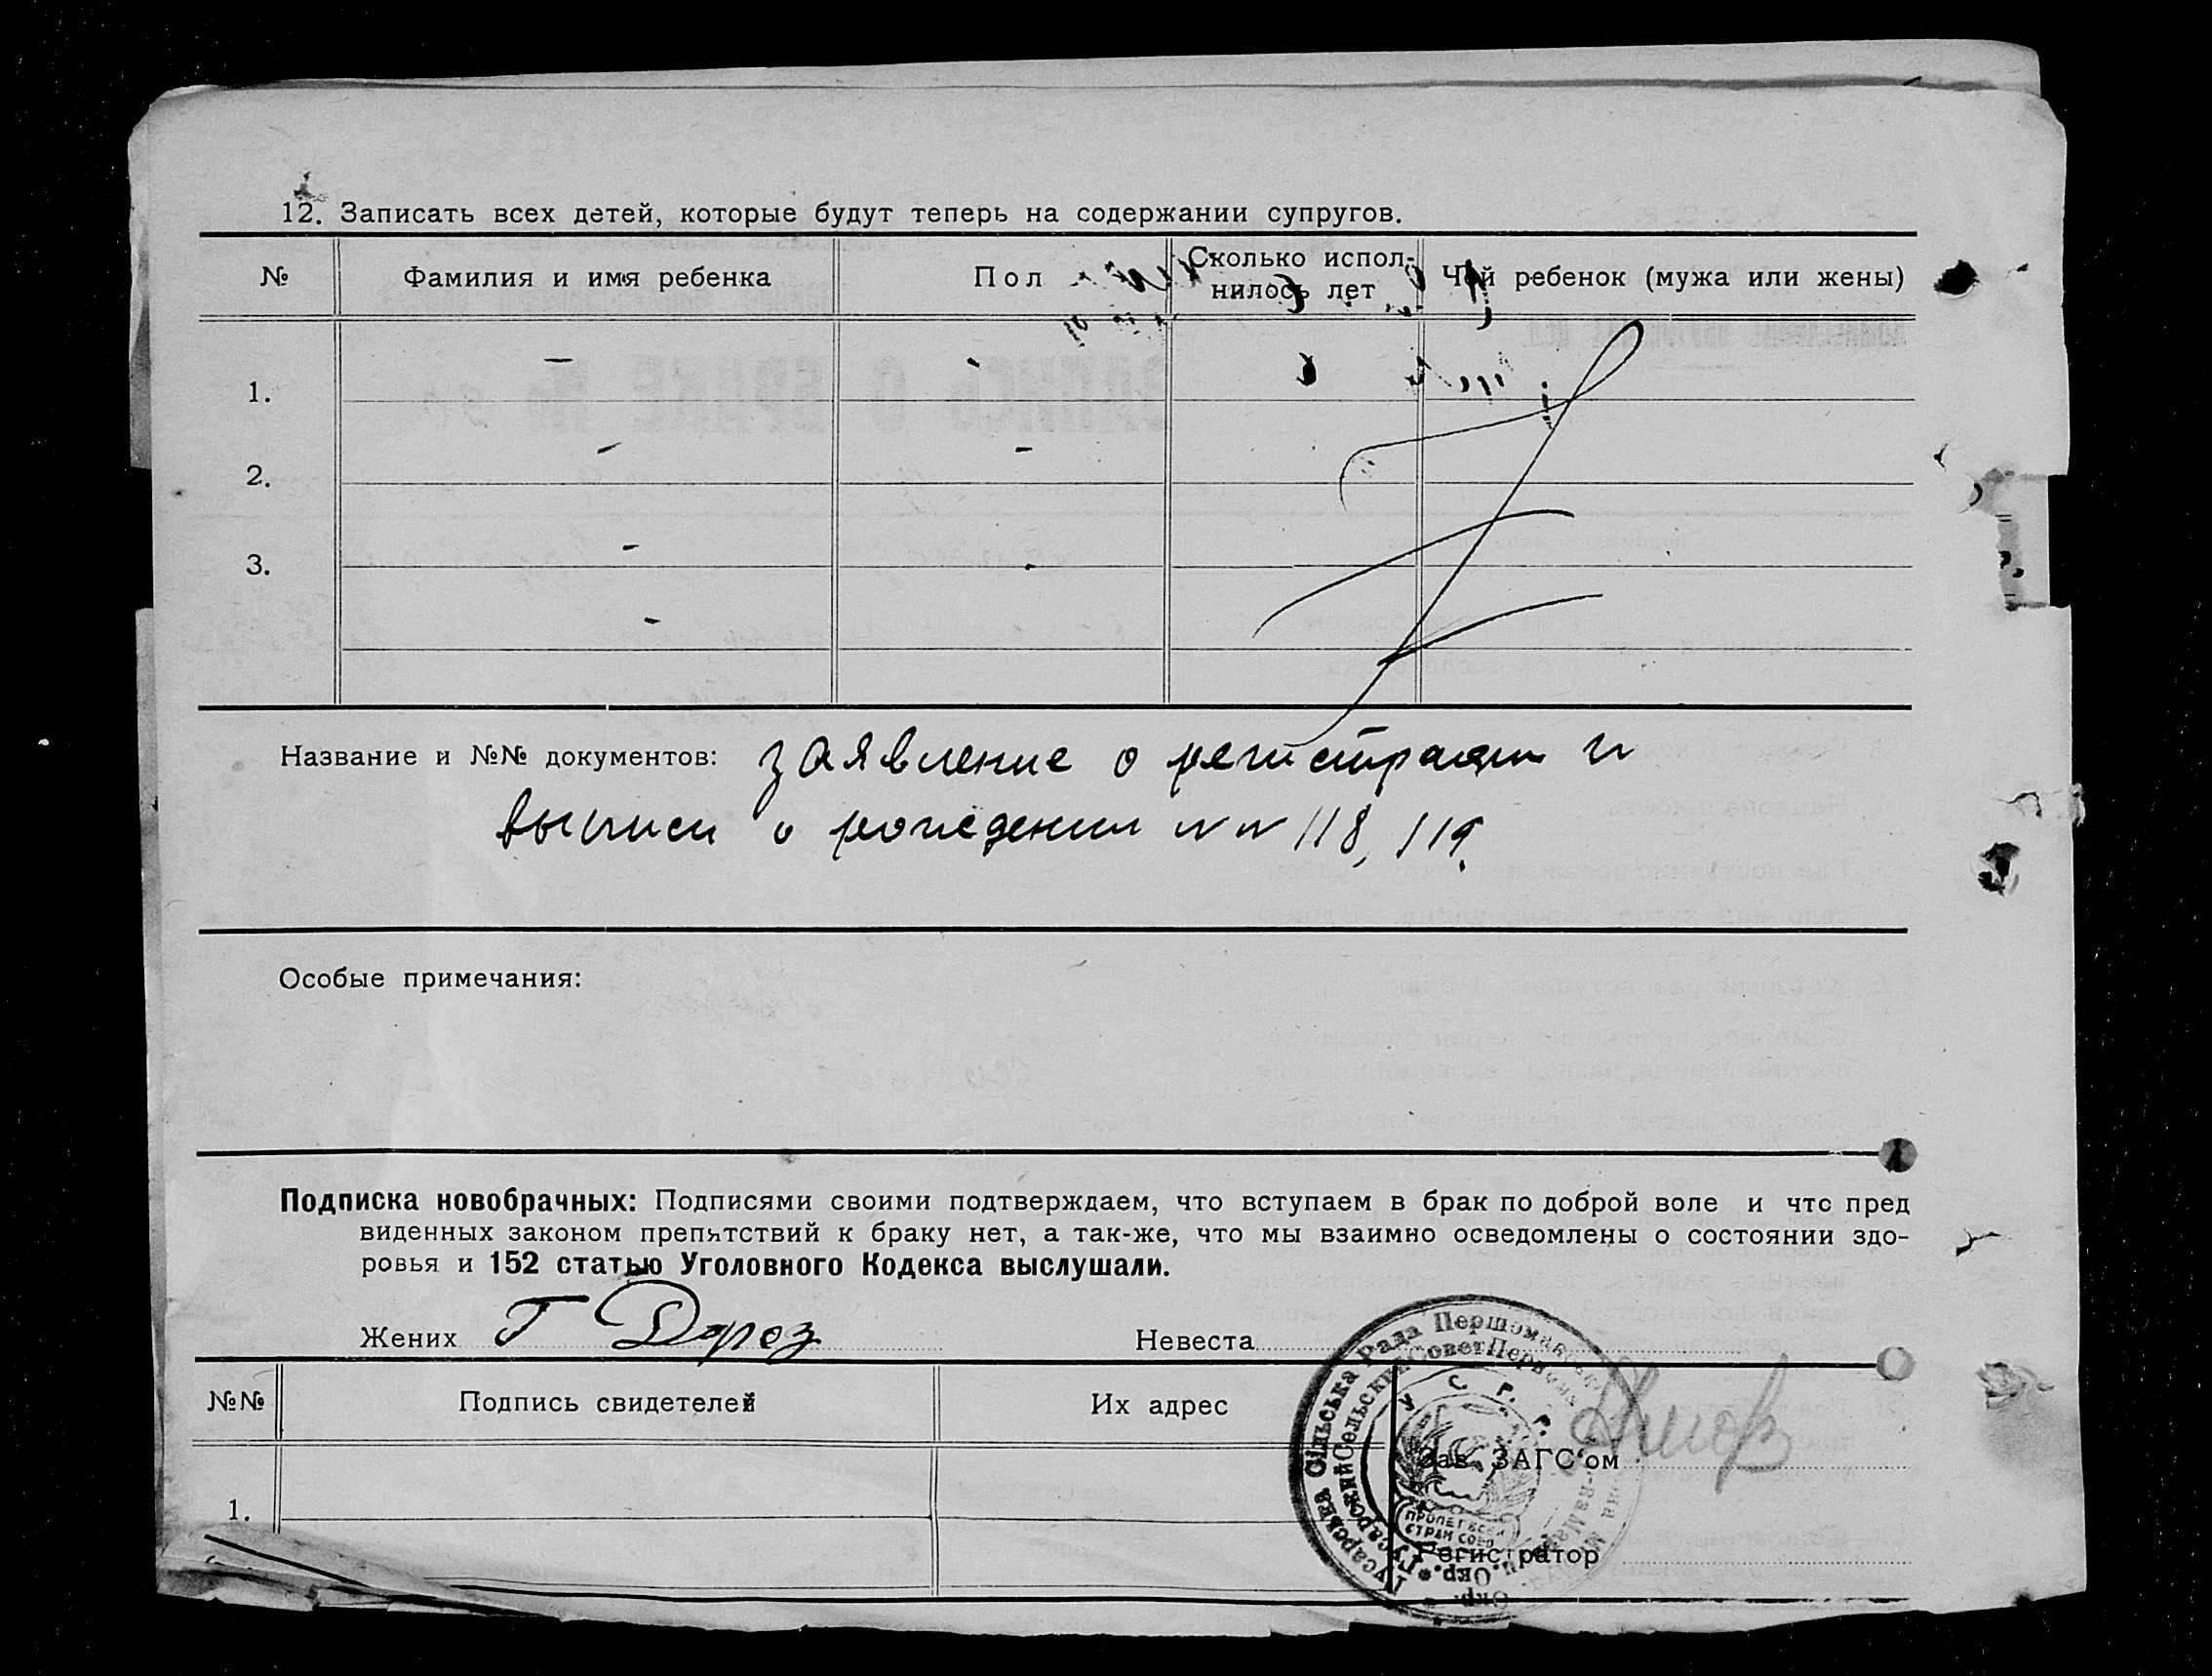 12. Записать всех детей, которые будут теперь на содержании супругов.
№ Фамилия и имя ребенка Пол Сколько испол- Чей ребенок (мужа или жены)
нилось лет
1.
2.
3.
Название и №№ документов: заявление о регистрации и
выписи о рождении NN 118, 119.
Особые примечания:
Подписка новобрачных: Подписями своими подтверждаем, что вступаем в брак по доброй воле и что пред
виденных законом препятствий к браку нет, а так-же, что мы взаимно осведомлены о состоянии здо-
ровья и 152 статью Уголовного Кодекса выслушали.
Жених Г Дароз Невеста
№№ Подпись свидетелей Их адрес
Зав. ЗАГС'ом
1.
Регистратор
Гусарівка Сільська Рада Першомайськ
Гусарский Сельский Совет Окр.
У. С. Р. Р.
ПРОЛЕТ ВСЕХ
СТРАН СОЕД